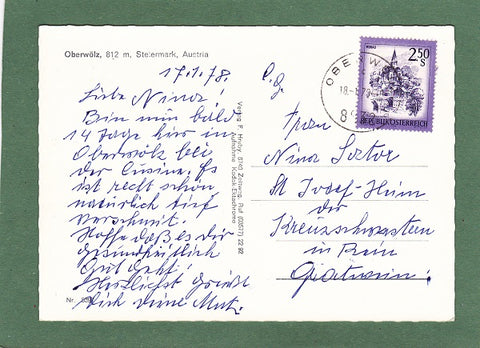 Oberwölz, 812 m. Steiermark, Austria
17.1.78.
Liebe Nina!
Bin nun bald
14 Tage hier in
Oberwölz bei
der Cusine. Es
ist recht schön
natürlich tief
verschneit.
Hoffe daß es dir
gesundheitlich
gut geht!
Herzlichst grüßt
dich deine
Nr.
Verlag F. Hruby, 8740 Zeltweg, Ruf (03577) 22 92
Aufnahme Kodak-Ektachrome
OBERW
18.-1.78
2.50 S
REPUBLIK ÖSTERREICH
Frau
Nina
St Josef-Heim
der
Kreuzschwestern
in Rein
Gratwein!